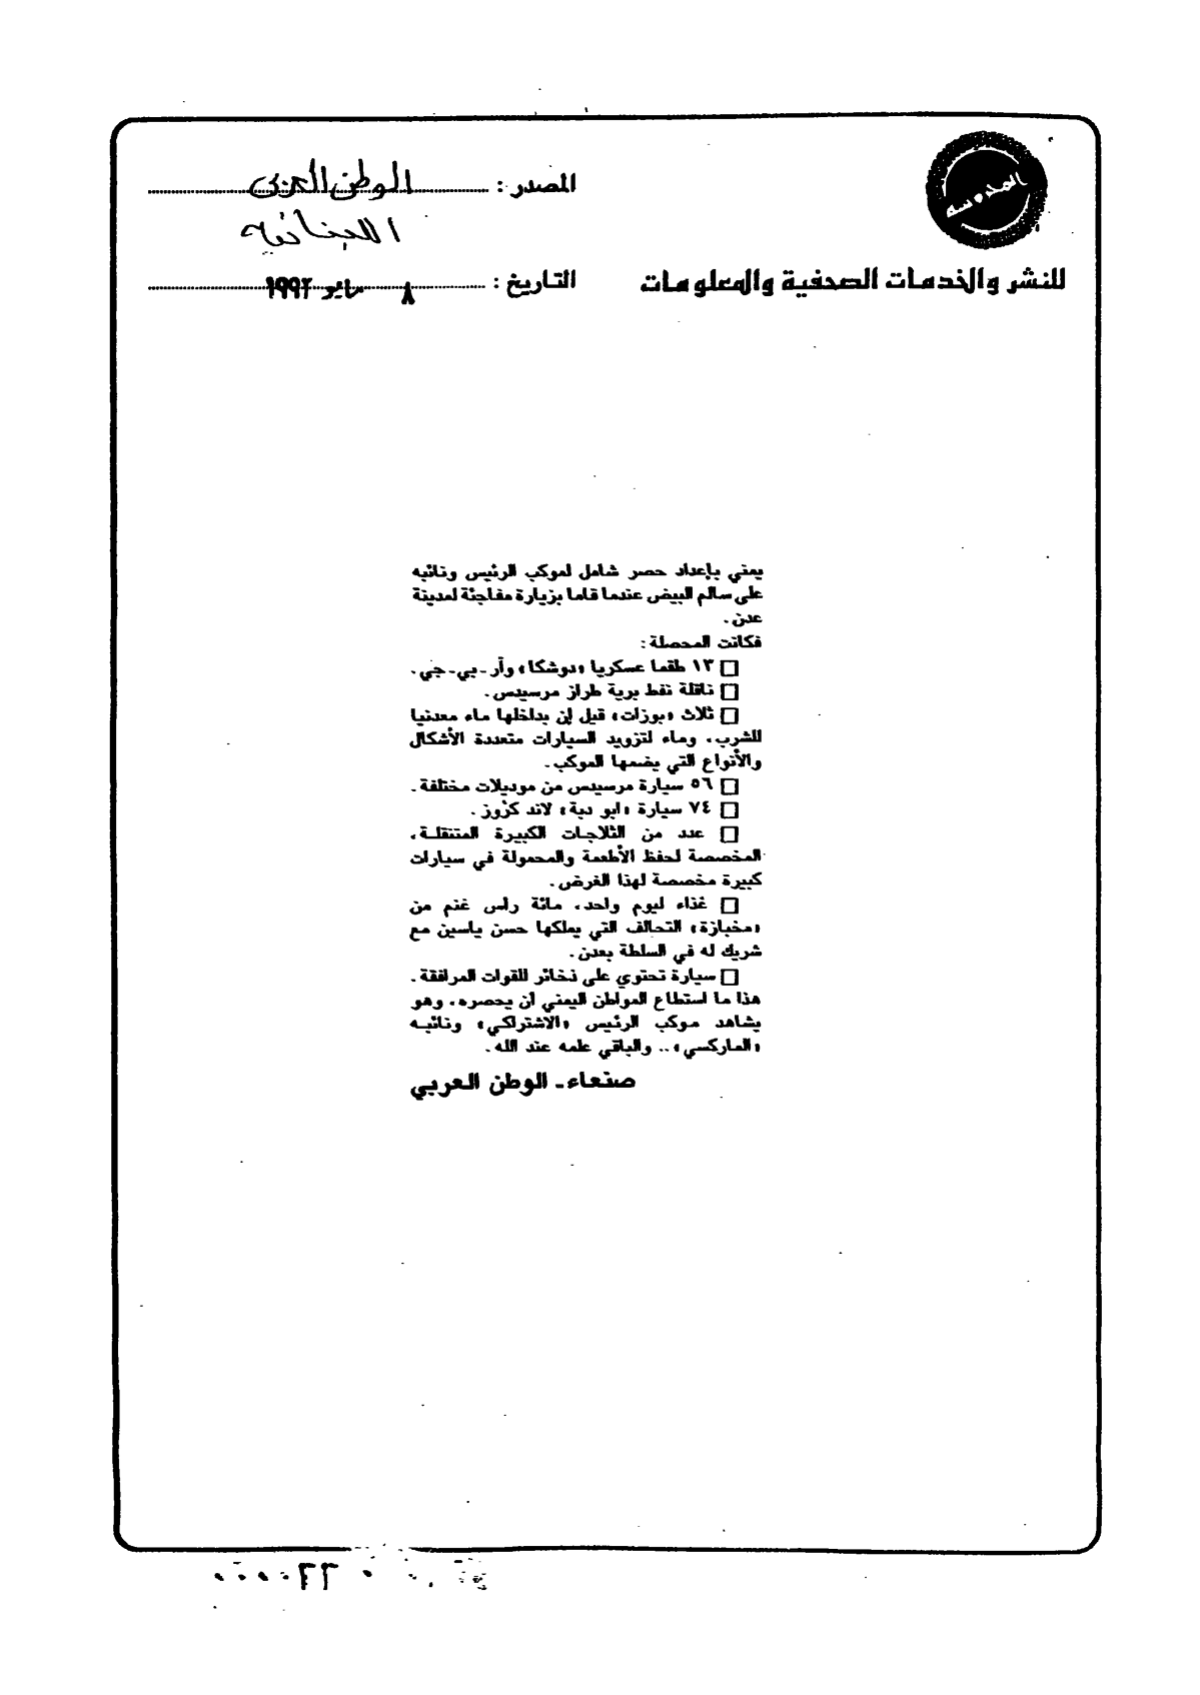 المحروسة
المصدر : الوطن العربي
اللبنانية
للنشر والخدمات الصحفية والمعلومات
التاريخ : ٨ مايو ١٩٩٢
يمني بإعداد حصر شامل لموكب الرئيس ونائبه
على سالم البيض عندما قاما بزيارة مفاجئة لمدينة
عدن .
فكانت المحصلة :
□ ١٣ طقما عسكريا «دوشكا» وآر ـ بي ـ جي .
□ ناقلة نفط برية طراز مرسيدس .
□ ثلاث «بوزات» قيل إن بداخلها ماء معدنيا
للشرب ، وماء لتزويد السيارات متعددة الأشكال
والأنواع التي يضمها الموكب .
□ ٥٦ سيارة مرسيدس من موديلات مختلفة .
□ ٧٤ سيارة «ابو دبة» لاند كروز .
□ عدد من الثلاجات الكبيرة المتنقلة ،
المخصصة لحفظ الأطعمة والمحمولة في سيارات
كبيرة مخصصة لهذا الغرض .
□ غذاء ليوم واحد ، مائة راس غنم من
«مخبازة» التحالف التي يملكها حسن ياسين مع
شريك له في السلطة بعدن .
□ سيارة تحتوي على ذخائر للقوات المرافقة .
هذا ما استطاع المواطن اليمني ان يحصره ، وهو
يشاهد موكب الرئيس «الاشتراكي» ونائبه
«الماركسي» .. والباقي علمه عند الله .
صنعاء ـ الوطن العربي